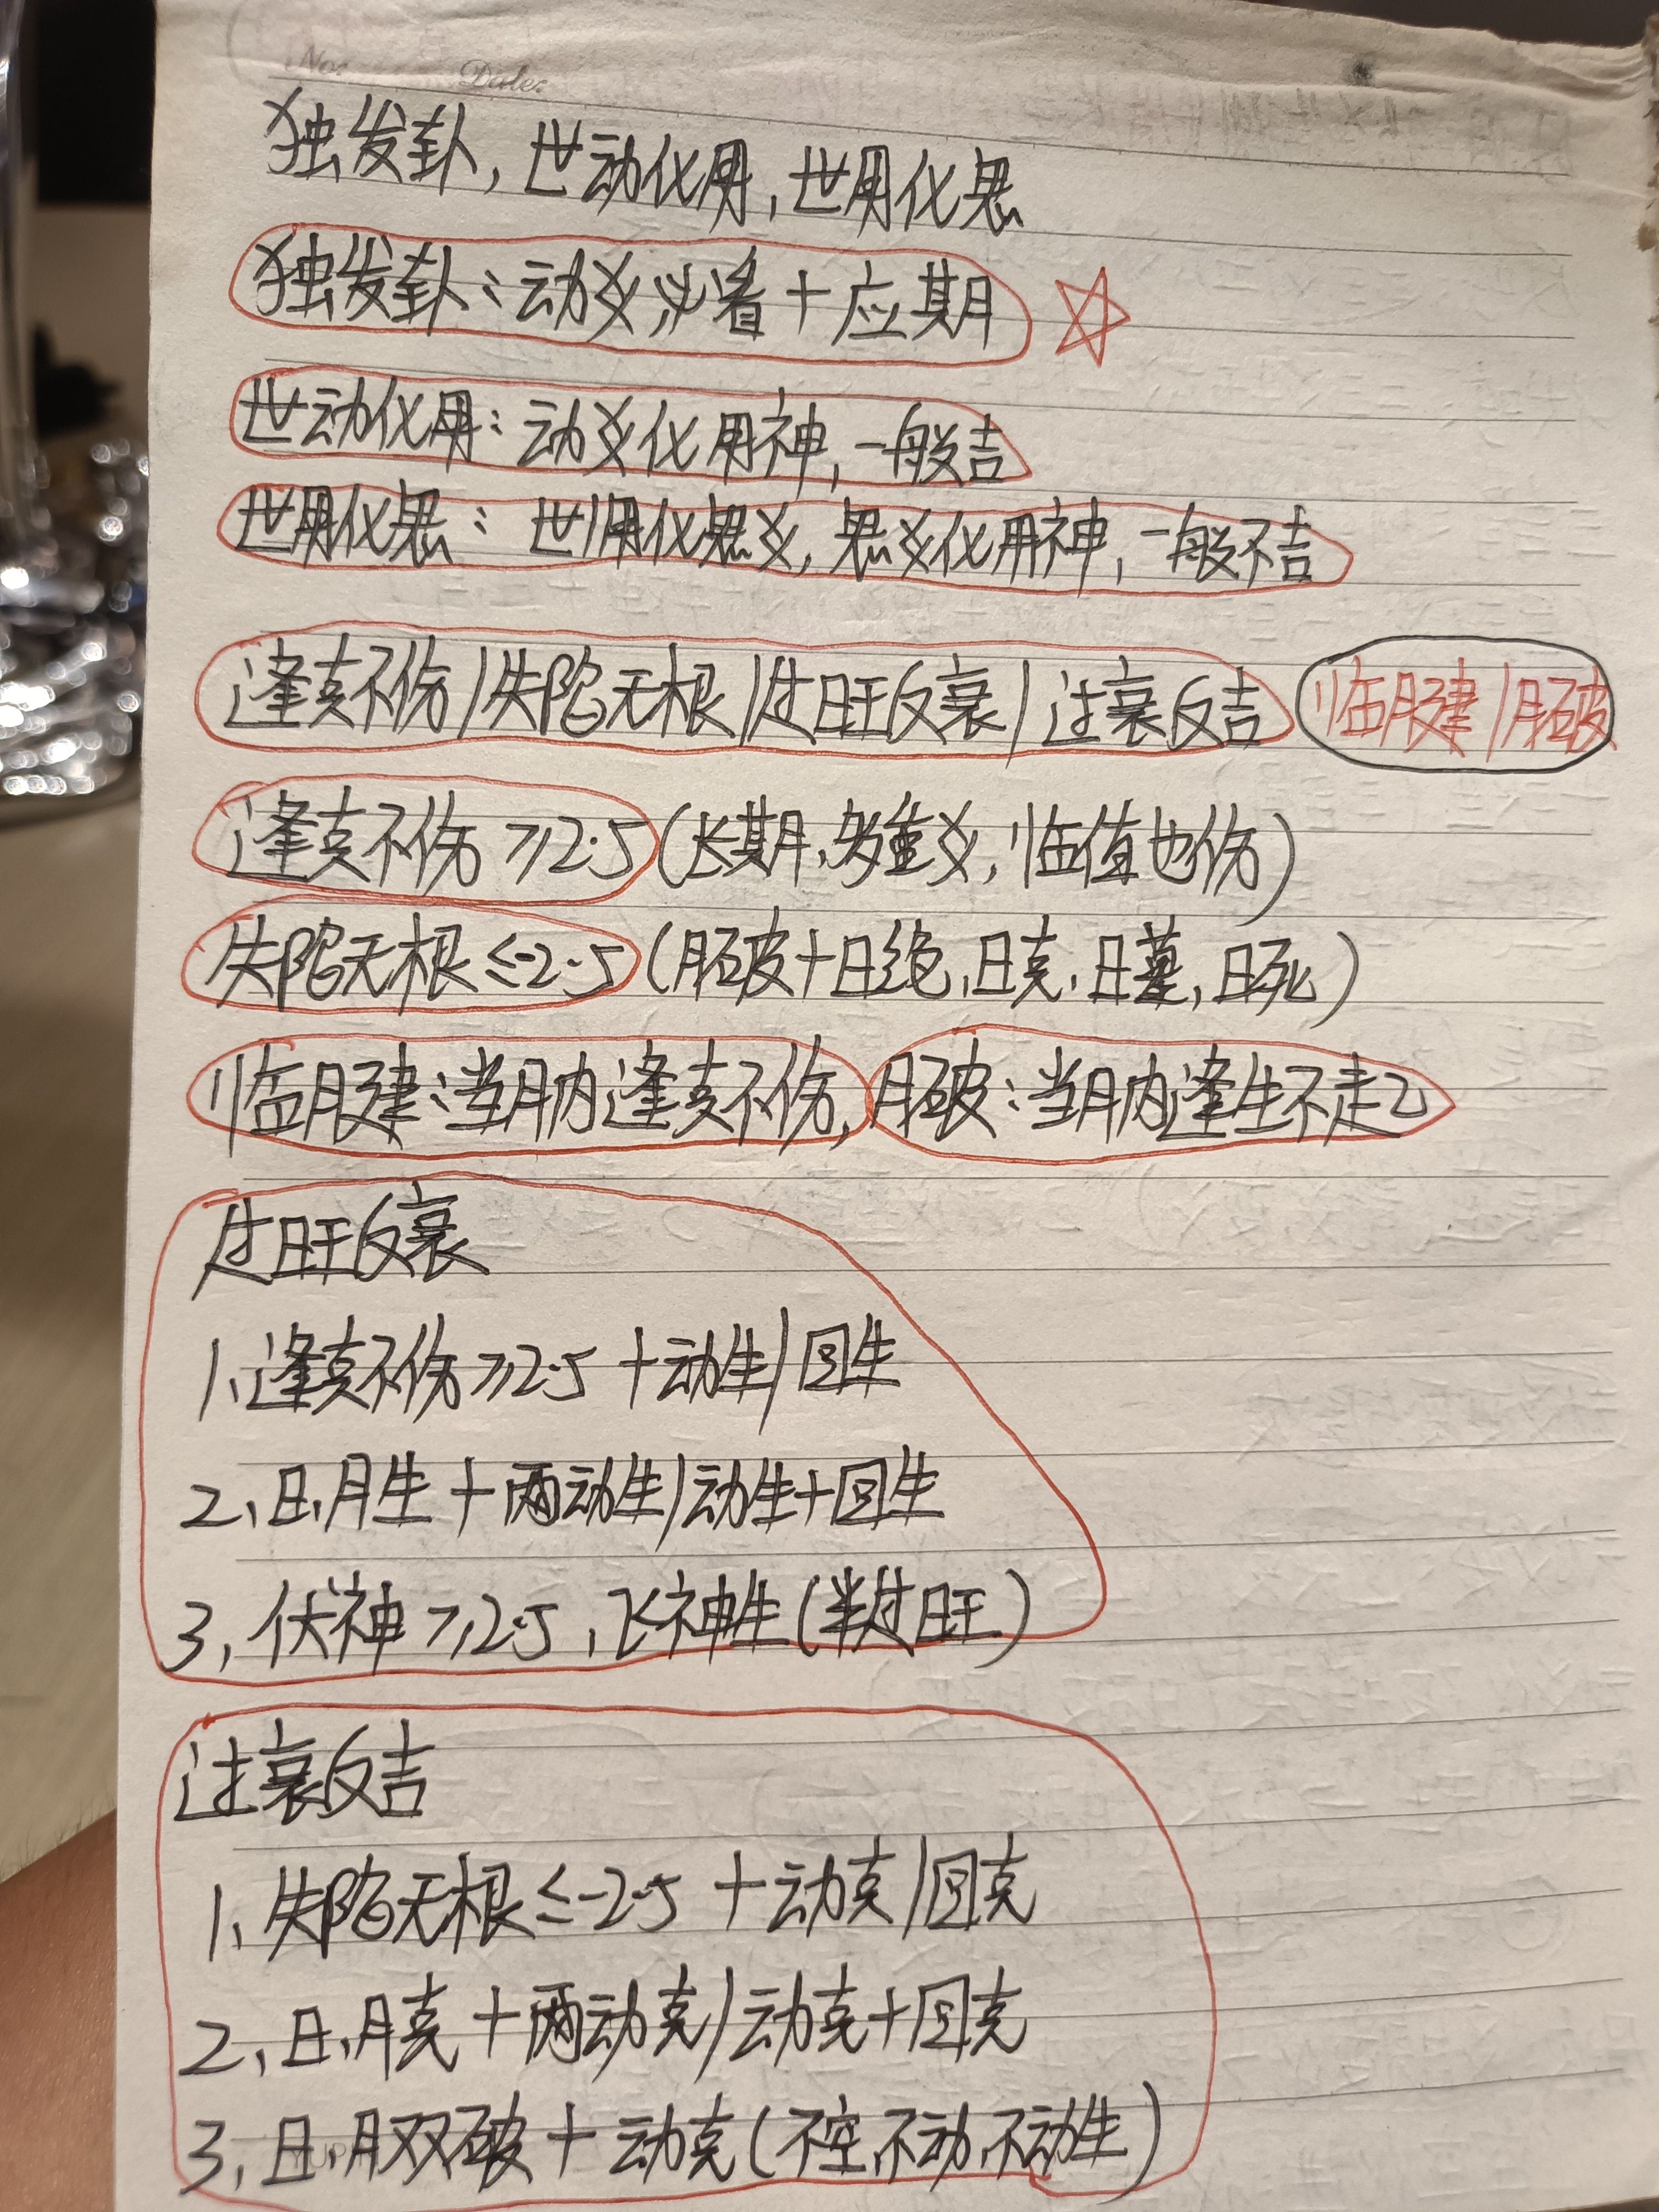 No:
Date:
独发卦，世动化用，世用化忌
独发卦：动爻必看+应期
世动化用：动爻化用神，一般吉
世用化忌：世用化忌爻，忌爻化用神，一般不吉
逢克不伤/失陷无根/过旺反衰/过衰反吉 临月建/月破
逢克不伤≥2.5（长期、多重爻，临值也伤）
失陷无根≤-2.5（月破+日绝、日克、日墓、日死）
临月建：当月内逢克不伤，月破：当月内逢生不起
过旺反衰
1、逢克不伤≥2.5+动生/回生
2、日、月生+两动生/动生+回生
3、伏神≥2.5、飞神生（半过旺）
过衰反吉
1、失陷无根≤-2.5+动克/回克
2、日、月克+两动克/动克+回克
3、日、月双破+动克（不空、不动、不动生）